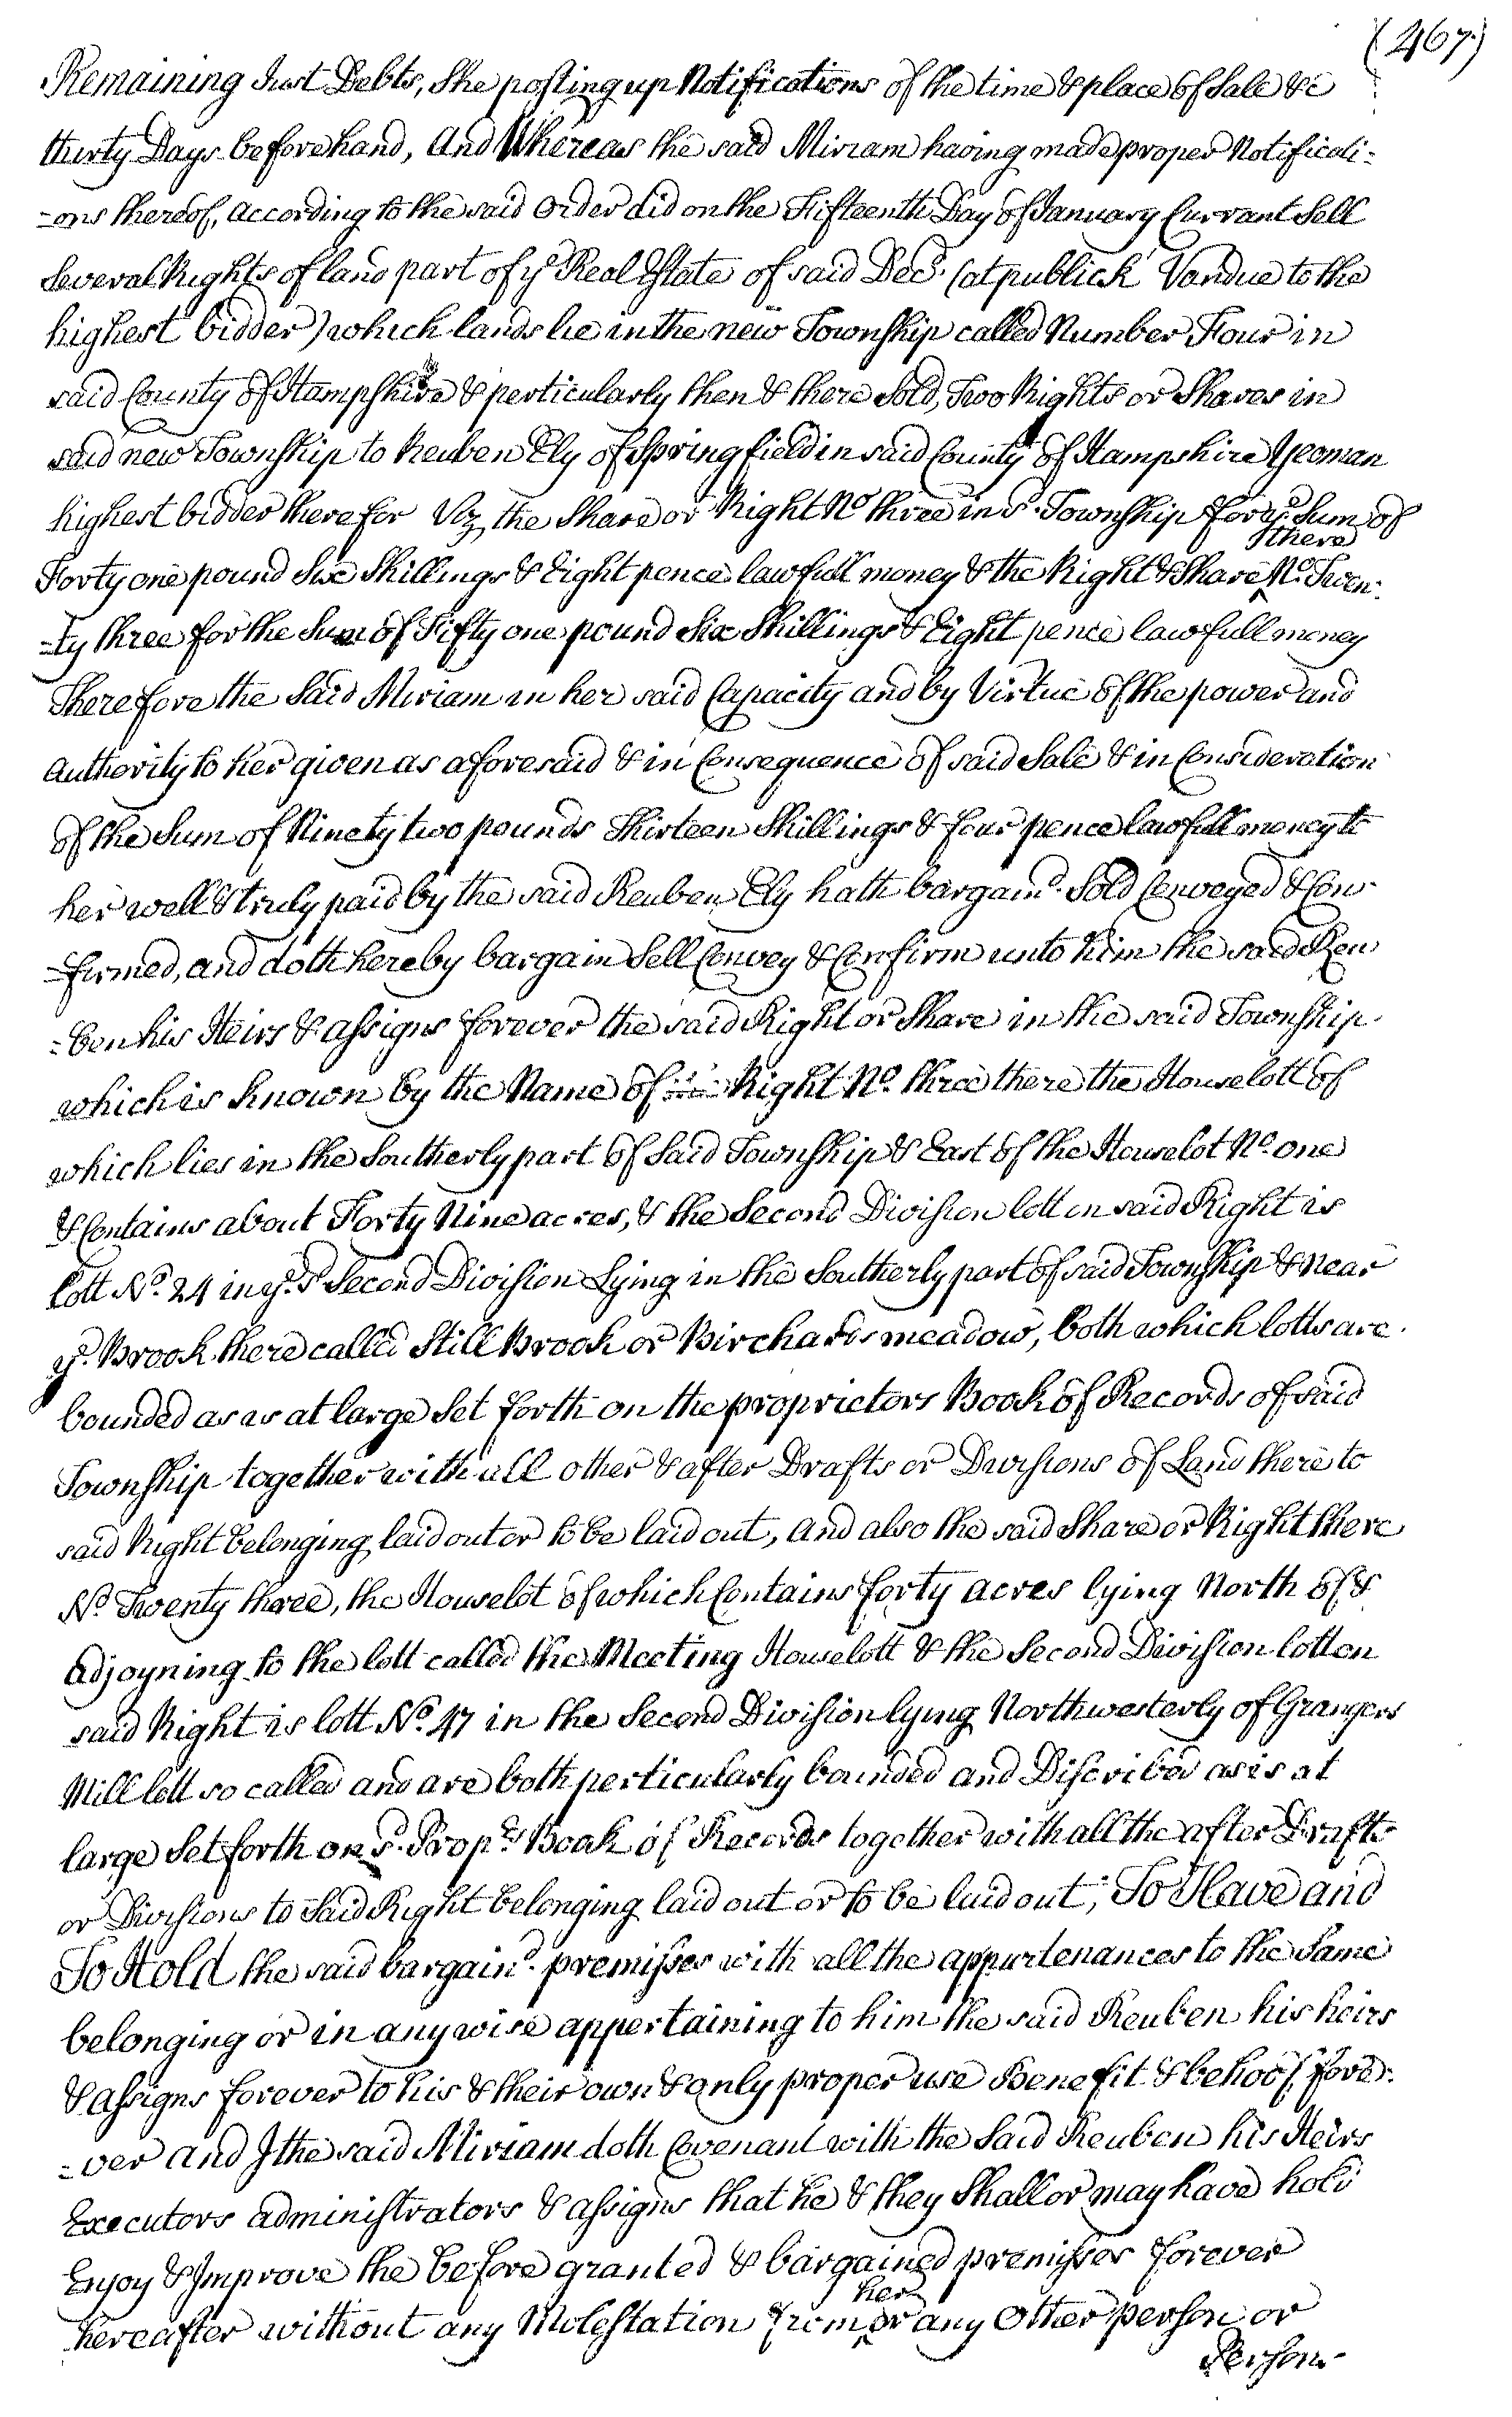 (467)
Remaining Just Debts, She posting up Notifications of the time & place of Sale &c
thirty Days beforehand, And Whereas the said Miriam having made proper Notificati=
=ons thereof, according to the said Order did on the Fifteenth Day of January Currant Sell
Several Rights of land part of ye Real Estate of said Decd. (at publick Vandue to the
highest bidder) which lands lie in the new Township called Number Four in
said County of Hampshire & perticularly then & there Sold, Two Rights or Shares in
said new Township to Reuben Ely of Springfield in said County of Hampshire Yeoman
highest bidder therefor Viz, the Share or Right No three in sd. Township for ye. Sum of
there
Forty one pound Six Shillings & Eight pence lawfull money & the Right & Share ^ No. Twen-
-ty three for the Sum of Fifty one pound Six Shillings & Eight pence lawfull money
Therefore the Said Miriam in her said Capacity and by Virtue of the power and
authority to her given as aforesaid & in Consequence of said Sale & in Consideration
of the Sum of Ninety two pounds Thirteen Shillings & four pence lawfull money to
her well & truly paid by the said Reuben Ely hath bargaind. Sold Conveyed & Con-
=firmed, and doth hereby bargain Sell Convey & Confirm unto him the said Reu
=ben his Heirs & assigns forever the said Right or Share in the said Township
which is known by the Name of Right No. three there the Houselott of
which lies in the Southerly part of Said Township & East of the Houselot No. one
& Contains about Forty Nine acres, & the Second Division lott in said Right is
lott No. 24 in ye. sd Second Division Lying in the Southerly part of said Township & near
ye. Brook there called Still Brook or Birchards meadow, both which lotts are
bounded as is at large Set forth on the proprietors Book of Records of said
Township together with all other & after Drafts or Divisions of Land there to
said Right belonging laid out or to be laid out, And also the said Share or Right there
No. Twenty three, the Houselot of which Contains forty acres lying North of &
adjoyning to the lott called the Meeting Houselott & the Second Division lott on
said Right is lott No. 47 in the Second Division lying Northwesterly of Grangers
Mill lott so called and are both perticularly bounded and Discribed as is at
large Set forth on sd. Proprs Book of Records together with all the after Drafts
or Divisions to Said Right belonging laid out or to be laid out; To Have and
To Hold the said bargaind. premisses with all the appurtenances to the Same
belonging or in any wise appertaining to him the said Reuben his heirs
& assigns forever to his & their own & only proper use Benefit & behoof, fore-
=ver and I the said Miriam doth Covenant with the Said Reuben his Heirs
Executors administrators & assigns that he & they Shall or may have hold
Enjoy & Improve the before granted & bargained premisses forever
her
hereafter without any Molestation from ^ or any Other person or
Persons